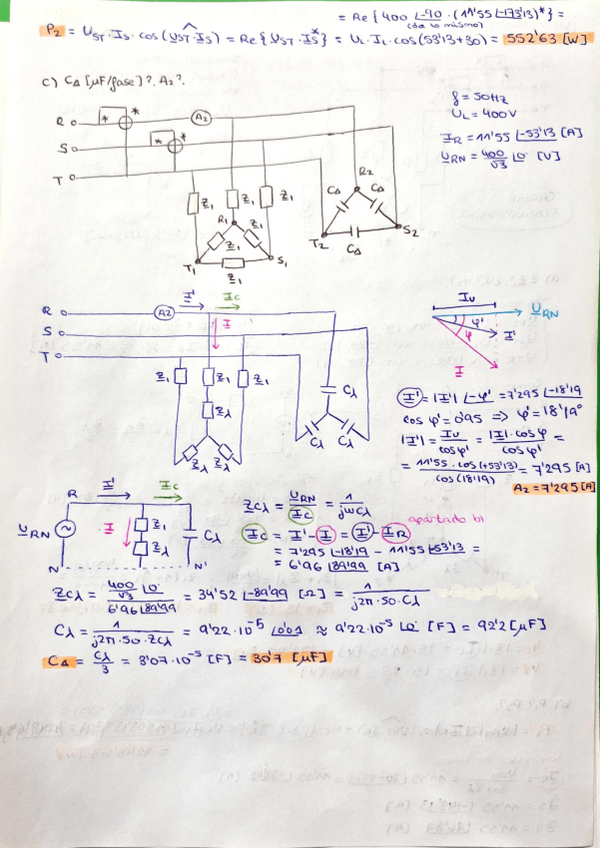 = Re{400 ∠-90 · (11'55 ∠-173'13)*} =
(da lo mismo)
P₂ = U_ST · I_S · cos(U_ST^I_S) = Re{U_ST · I_S*} = U_L · I_L · cos(53'13+30) = 552'63 [W]
c) C_Δ [μF/fase]? A₂?
f = 50Hz
U_L = 400V
I_R = 11'55 ∠-53'13 [A]
U_RN = 400/√3 ∠0° [V]
R * * A₂
S * *
T
Z₁ Z₁ Z₁
R₁ Z₁ Z₁ Z₁ T₁ S₁
R₂ C_Δ C_Δ C_Δ T₂ S₂
R A₂ I' I_C
S I
T
Z₁ Z₁ Z₁
Z_λ Z_λ Z_λ
C_λ C_λ C_λ
I_U U_RN
φ' I'
φ
I
I' = |I'| ∠-φ' = 7'295 ∠-18'19
cos φ' = 0'95 ⇒ φ' = 18'19°
|I'| = I_U/cosφ' = |I|·cosφ/cosφ' =
= 11'55 · cos(+53'13)/cos(18'19) = 7'295 [A]
A₂ = 7'295 [A]
R I' I_C
U_RN I Z₁ Z_λ C_λ
N N'
Z_Cλ = U_RN/I_C = 1/jωC_λ
apartado b)
I_C = I' - I = I' - I_R =
= 7'295 ∠-18'19 - 11'55 ∠-53'13 =
= 6'96 ∠89'99 [A]
Z_Cλ = 400/√3 ∠0°/6'96 ∠89'99 = 34'52 ∠-89'99 [Ω] = 1/j2π·50·C_λ
C_λ = 1/j2π·50·Z_Cλ = 9'22·10⁻⁵ ∠0'01 ≈ 9'22·10⁻⁵ ∠0° [F] = 92'2 [μF]
C_Δ = C_λ/3 = 3'07·10⁻⁵ [F] = 30'7 [μF]